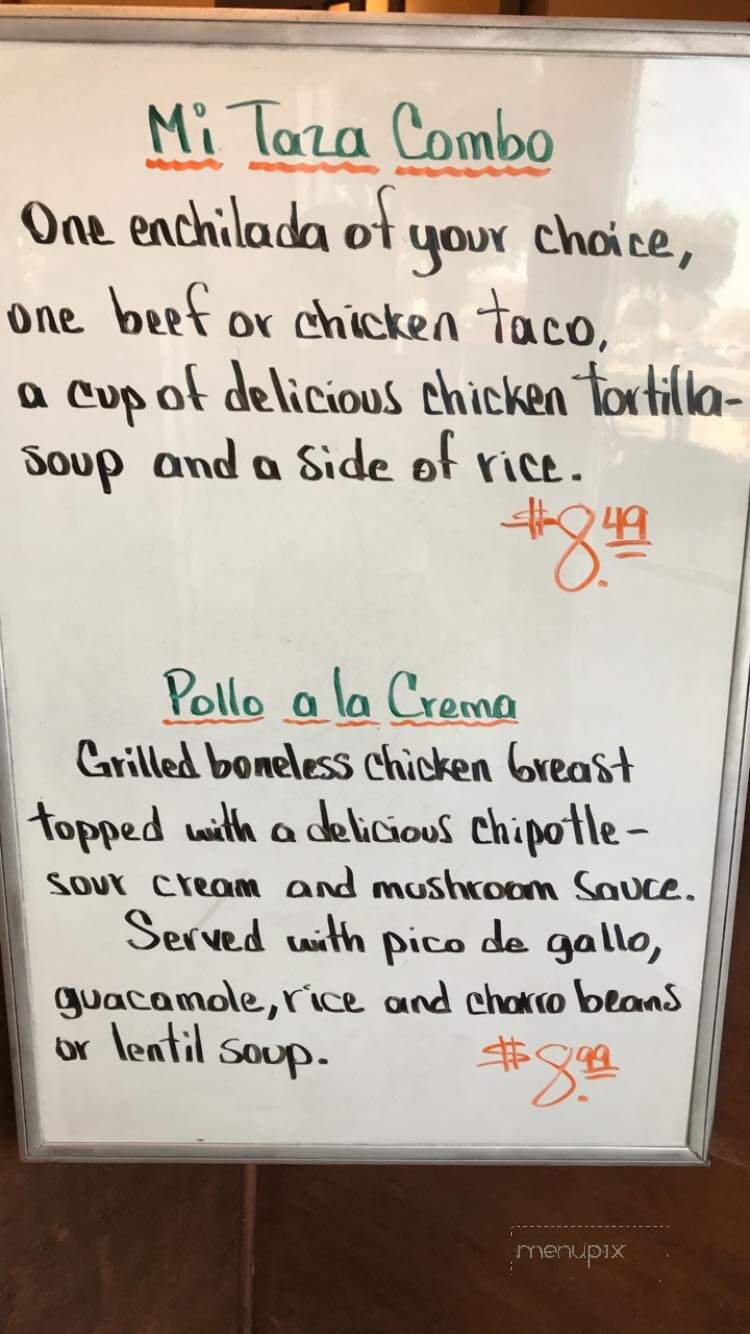 Mi Taza Combo
One enchilada of your choice,
one beef or chicken taco,
a cup of delicious chicken tortilla-
soup and a side of rice.
$8.49
Pollo a la Crema
Grilled boneless chicken breast
topped with a delicious chipotle-
sour cream and mushroom sauce.
Served with pico de gallo,
guacamole, rice and charro beans
or lentil soup.
$8.99
menupix